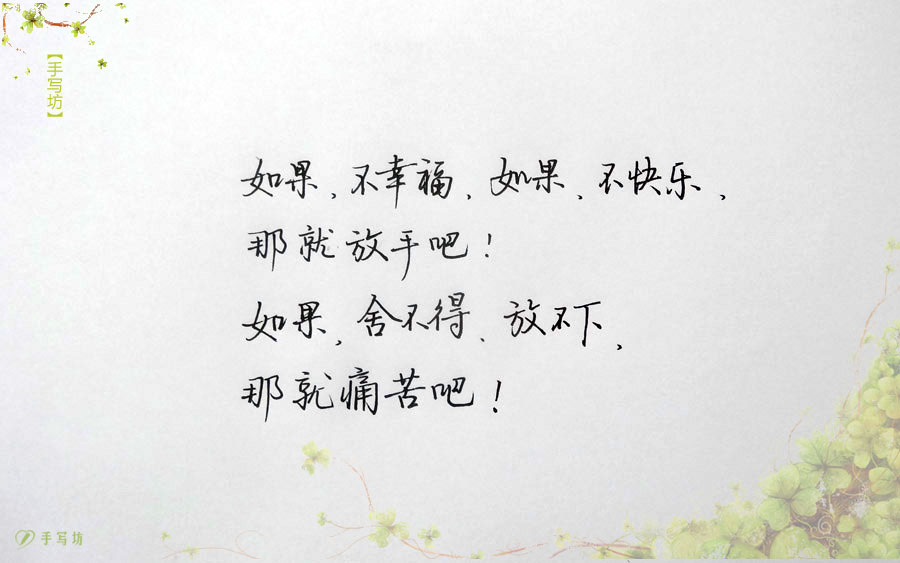 【手写坊】
如果、不幸福、如果、不快乐，
那就放手吧！
如果，舍不得、放不下，
那就痛苦吧！
手写坊